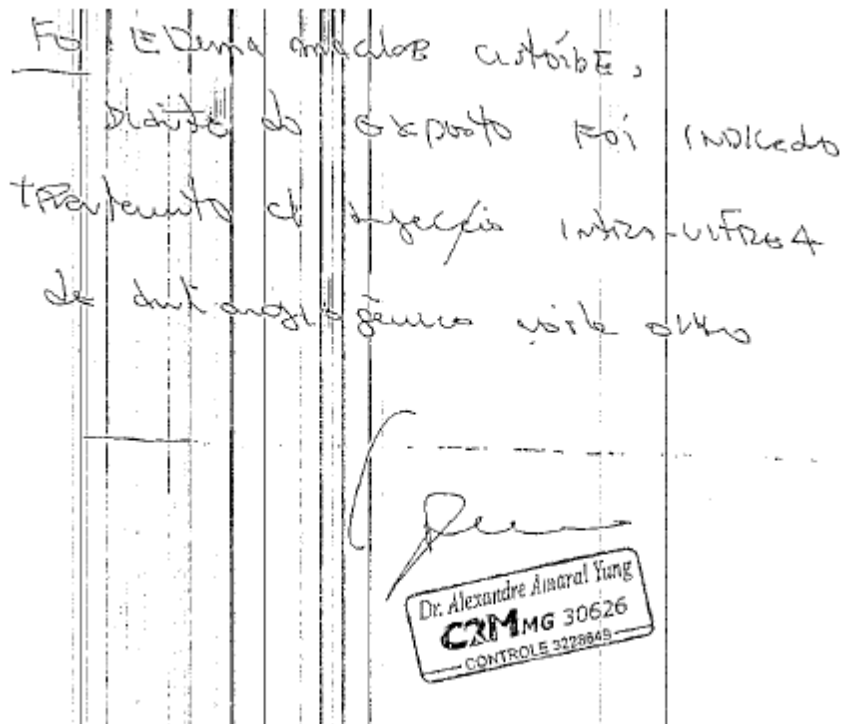 FO: Edema macular cistóide,
Diante do exposto foi indicado
tratamento c/ injeção intra-vítrea
de anti angiogênico neste olho
Dr. Alexandre Amaral Yung
CRMMG 30626
CONTROLE 3228649